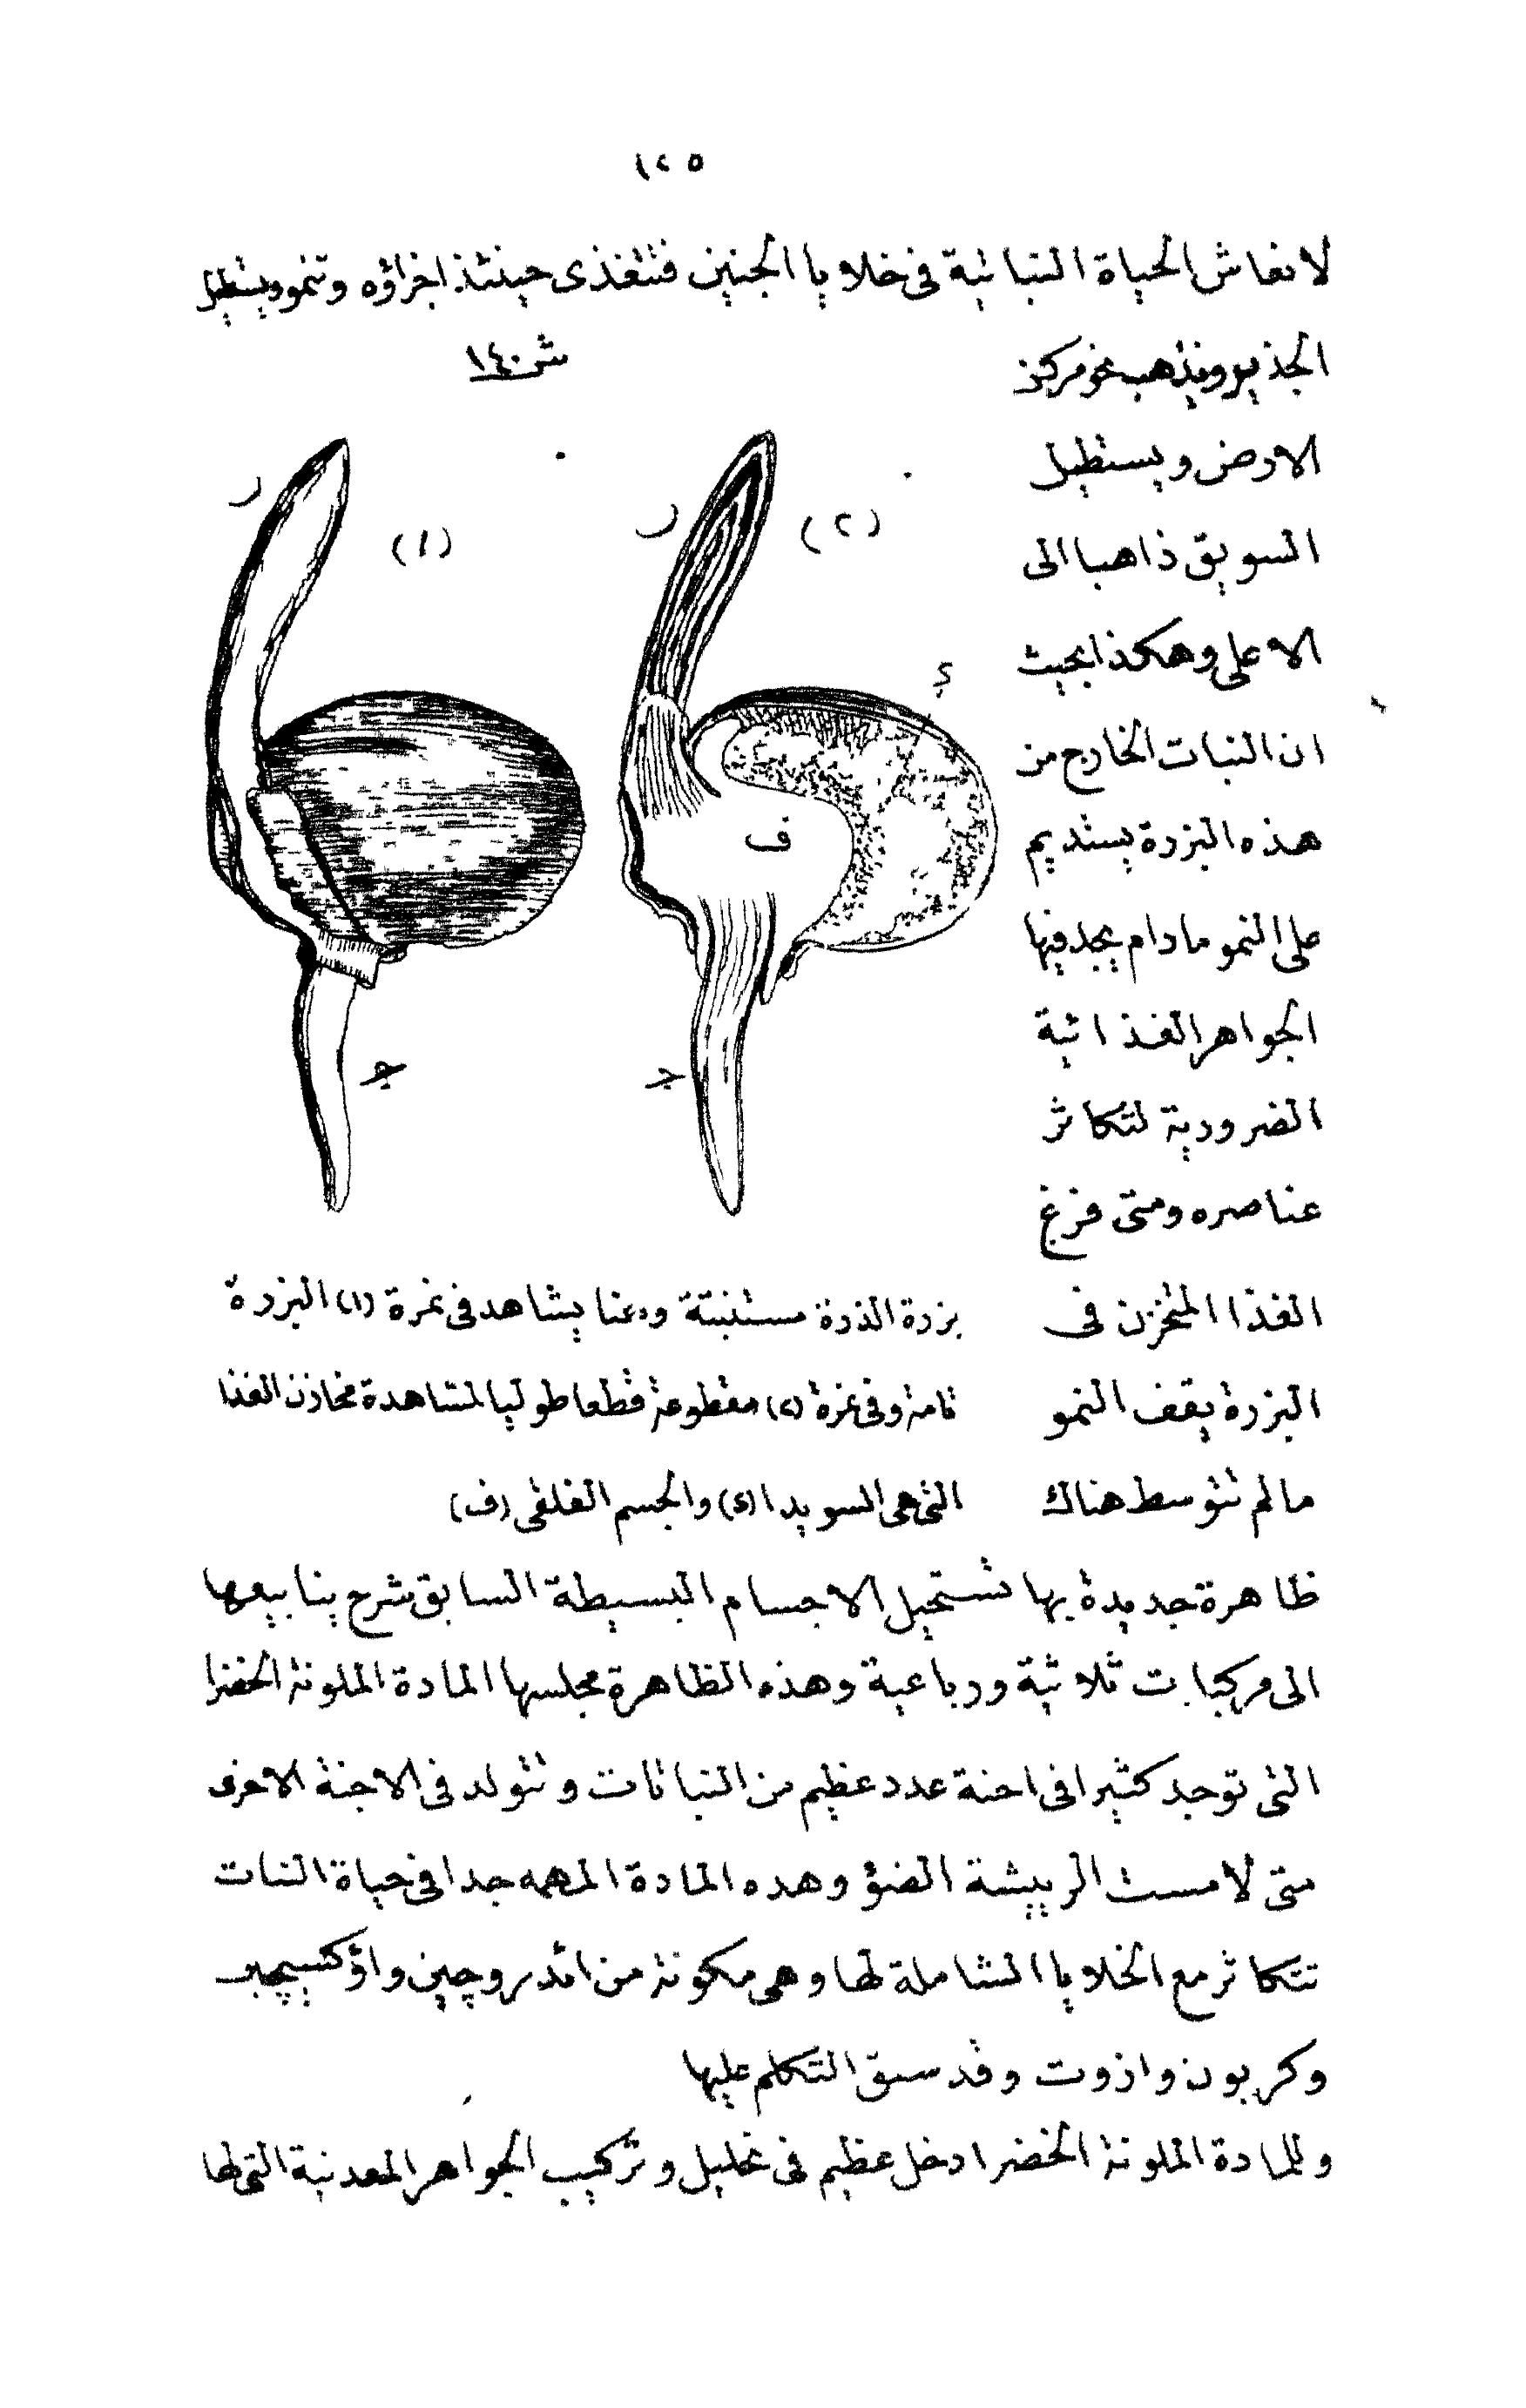 ١٢٥
لانعاش الحياة النباتية فى خلايا الجنين فتتغذى حينئذ اجزاؤه وتنمو ويستطيل
الجذير ويذهب نحو مركز
ش ١٤٠
الارض ويستطيل
السويق ذاهبا الى
الاعلى وهكذا بحيث
ان النبات الخارج من
هذه البزرة يستديم
على النمو مادام يجد فيها
الجواهر الغذائية
الضرورية لتكاثر
عناصره ومتى فرغ
الغذا المتخزن فى
البزرة يقف النمو
مالم تتوسط هناك
ر
(١)
جـ
ر
(٢)
ء
ف
جـ
بزرة الذرة مستنبتة وهنا يشاهد فى نمرة (١) البزرة
تامة وفى نمرة (٢) مقطوعة قطعا طوليا لمشاهدة مخازن الغذا
التى هى السويدا (ء) والجسم الفلقى (ف)
ظاهرة جديدة بها تستحيل الاجسام البسيطة السابق شرح ينابيعها
الى مركبات ثلاثية ورباعية وهذه الظاهرة مجلسها المادة الملونة الخضرا
التى توجد كثيرا فى اجنة عدد عظيم من النباتات وتتولد فى الاجنة الاخرى
متى لامست الريشة الضؤ وهده المادة المهمه جدا فى حياة النبات
تتكاثر مع الخلايا الشاملة لها وهى مكونة من ائدروچين واؤكسيچين
وكربون وازوت وقد سبق التكلم عليها
وللمادة الملونة الخضرا دخل عظيم فى تحليل وتركيب الجواهر المعدنية التى لها